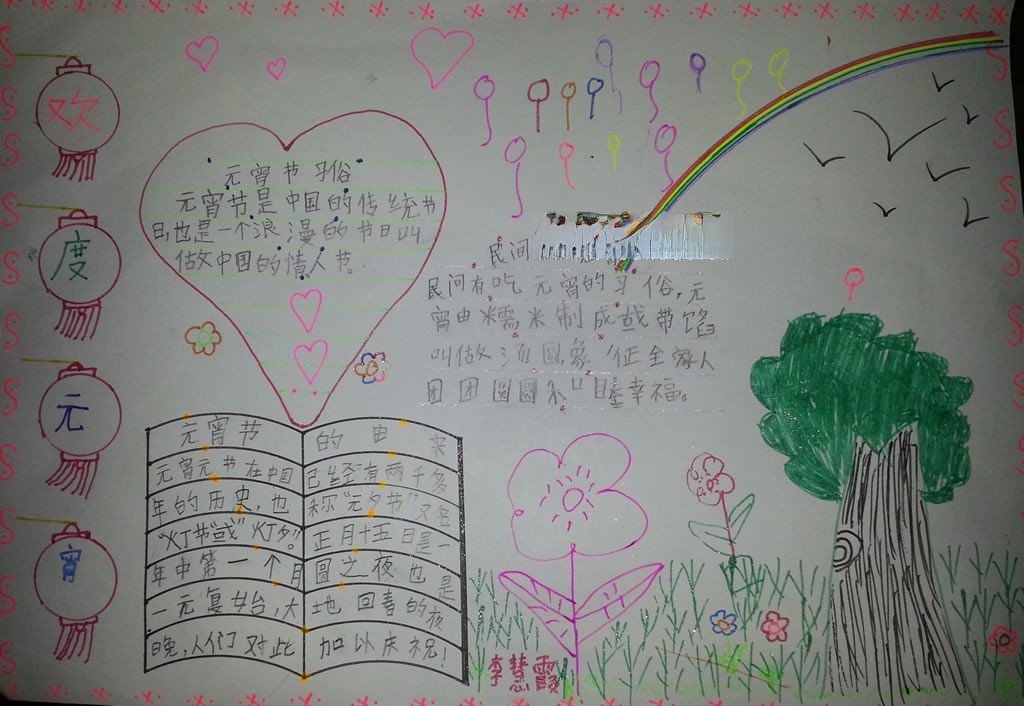 欢
度
元
宵
元宵节习俗
元宵节是中国的传统节
日,也是一个浪漫的节日叫
做中国的情人节。
民间
民间有吃元宵的习俗,元
宵由糯米制成或带馅
叫做汤圆,象征全家人
团团圆圆和睦幸福。
元宵节的由来
元宵元节在中国已经有两千多
年的历史,也称“元夕节”又名
“灯节”或”灯夕。正月十五日是一
年中第一个月圆之夜也是
一元复始,大地回春的夜
晚,人们对此加以庆祝!
李慧霞